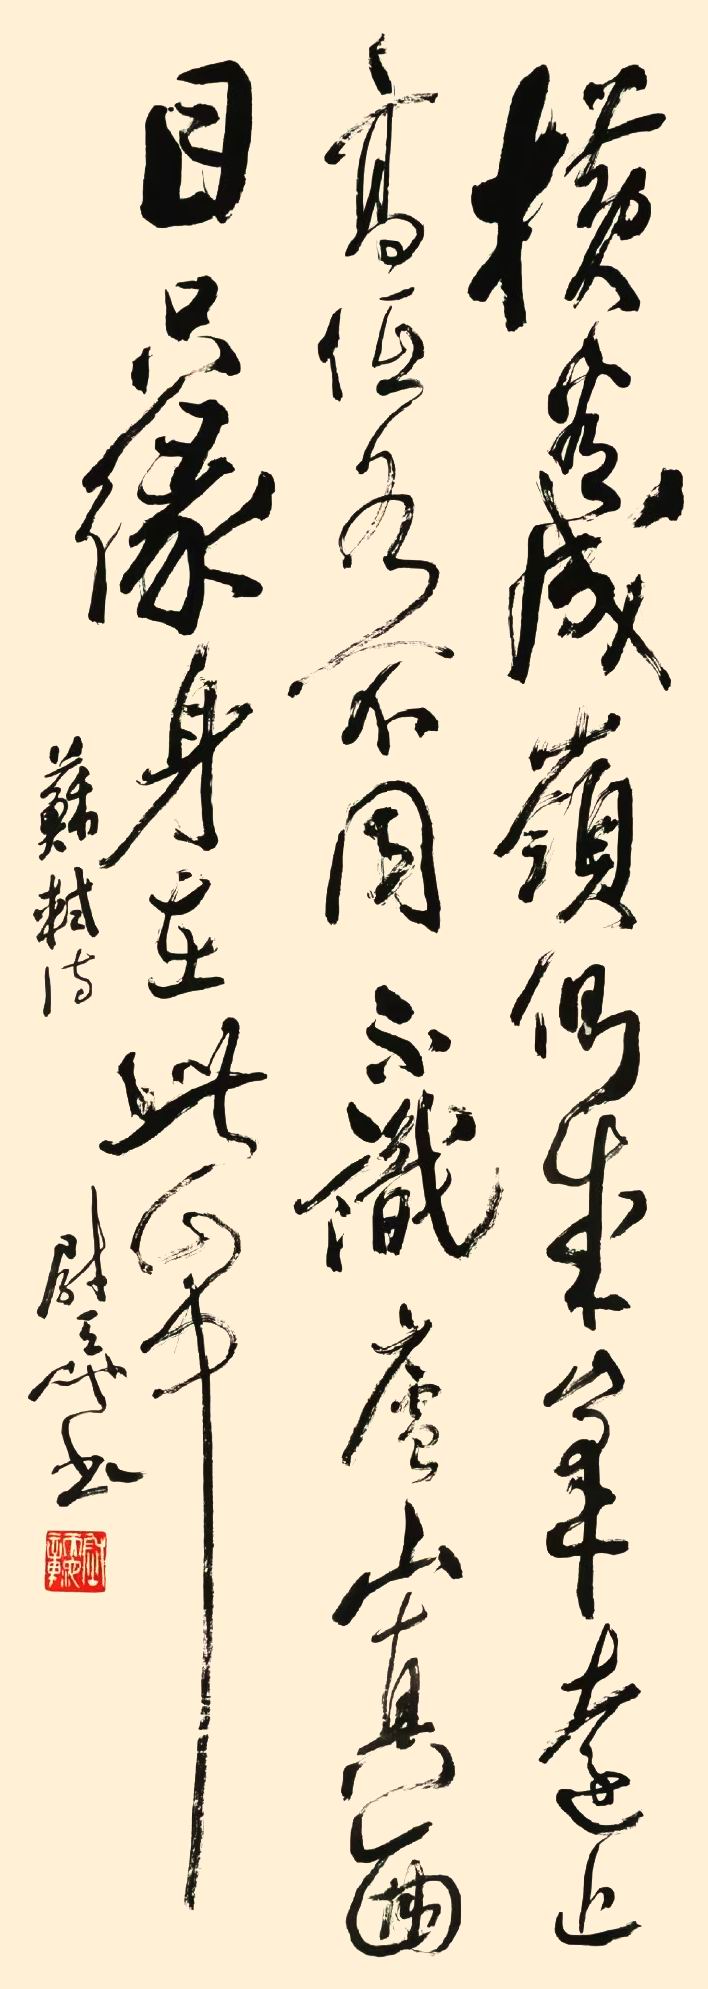 橫看成嶺側成峯遠近
高低各不同不識廬山真面
目只緣身在此山中
蘇軾詩 尉天池書